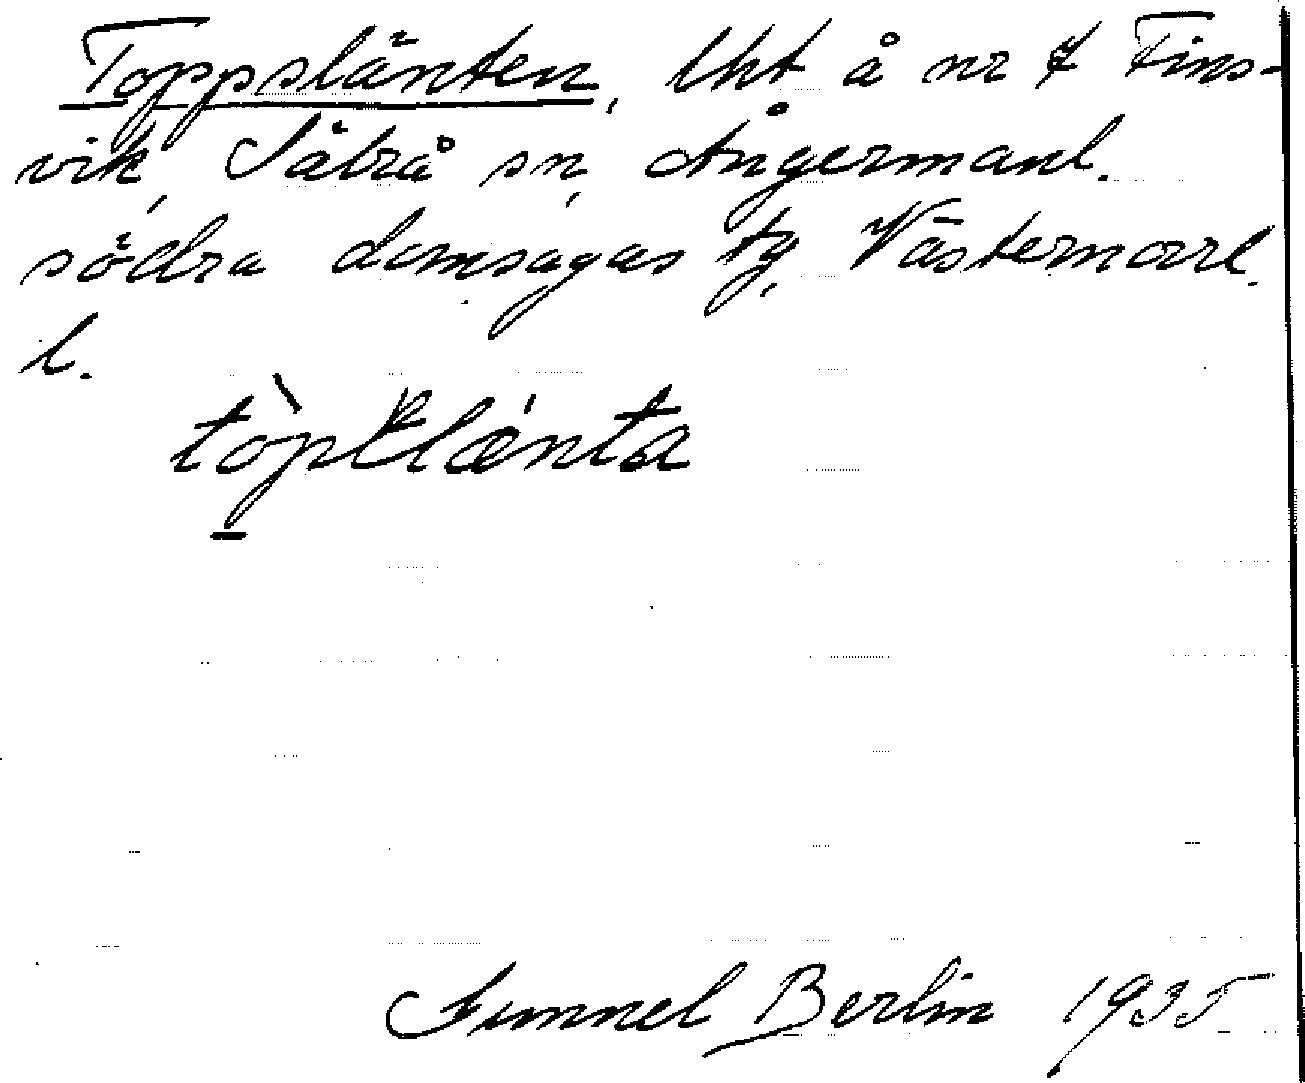 Toppslänten, lht å nr 7 Fins-
vik, Säbrå sn, Ångermanl.
södra domsagas tg, Västernorrl.
l.
Gunnel Berlin 1935